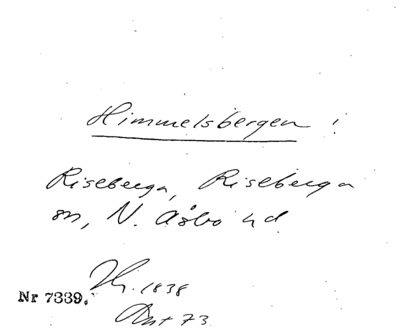 Himmelsbergen !
Riseberga, Riseberga
sn, N. Åsbo hd.
1838
Nr 7339.
Ant 73